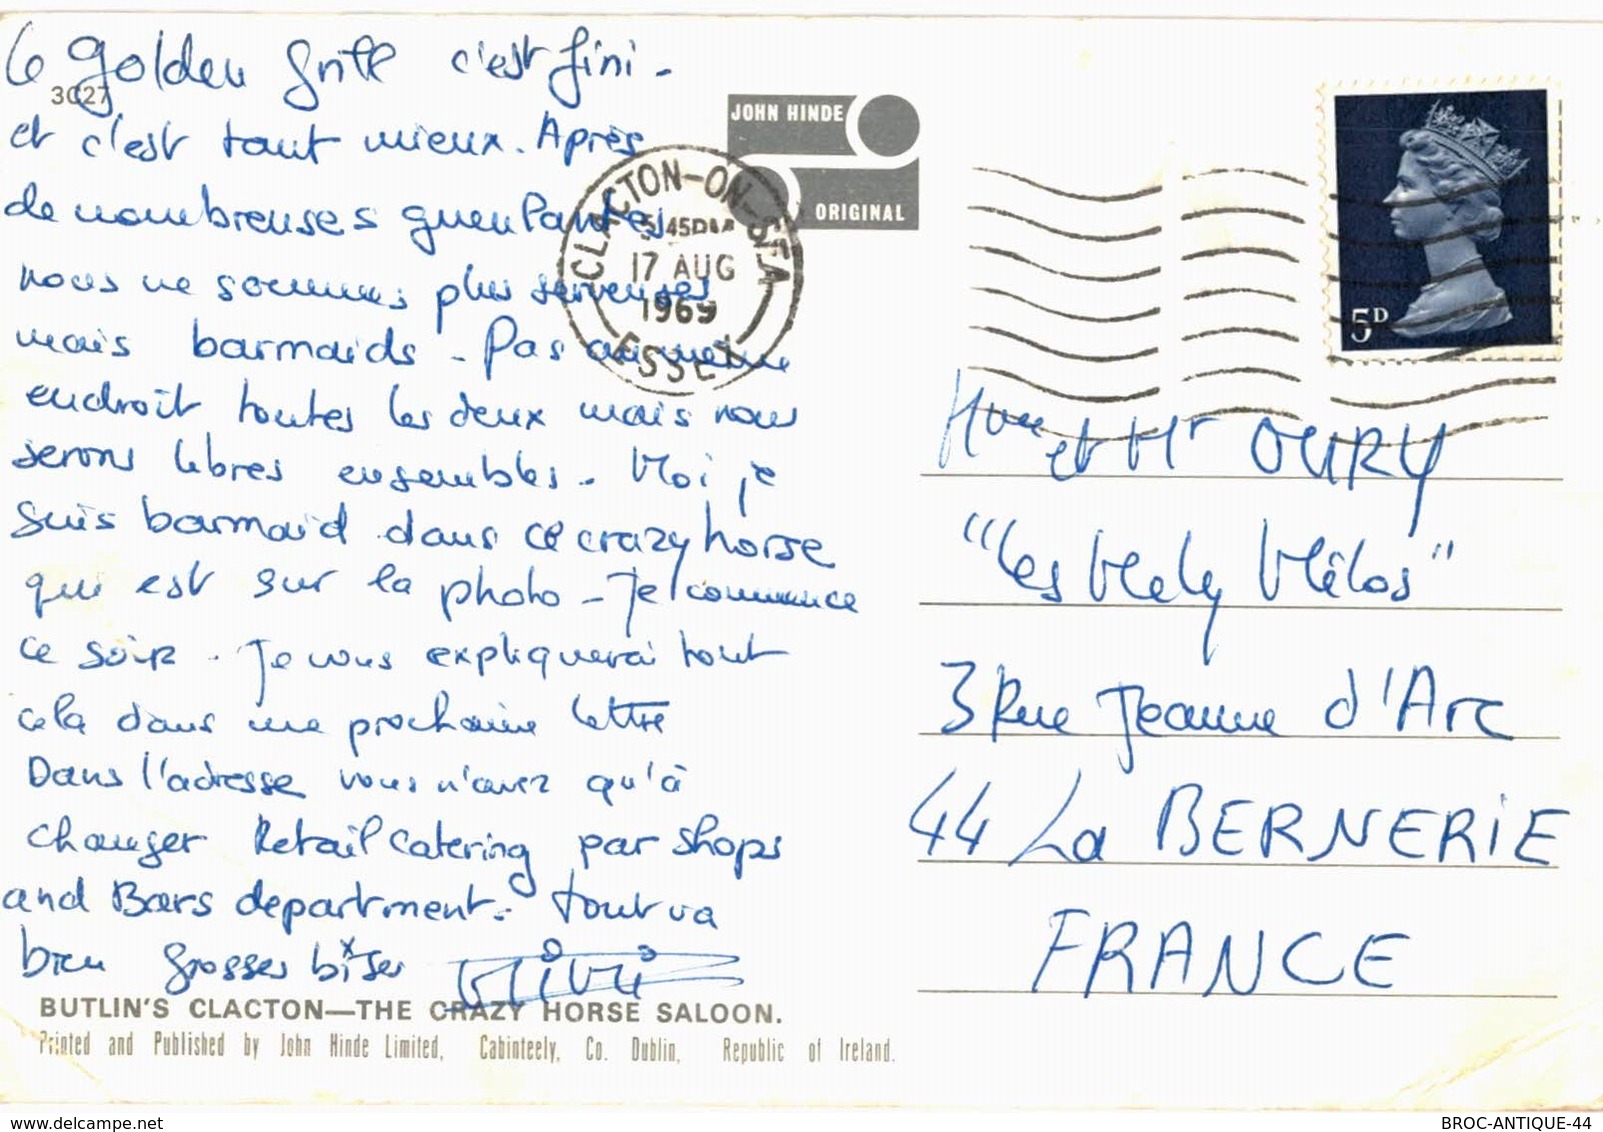 Le golden grill c'est fini -
3C27
et c'est tant mieux. Après
de nombreuses gueulantes
nous ne sommes plus serveuses
mais barmaids - Pas au même
endroit toutes les deux mais nous
serons libres ensembles - Moi je
suis barmaid dans ce crazy horse
qui est sur la photo - Je commence
ce soir. Je vous expliquerai tout
cela dans une prochaine lettre
Dans l'adresse vous n'avez qu'à
changer Retail Catering par Shops
and Bars department. tout va
bien grosses bises
BUTLIN'S CLACTON—THE CRAZY HORSE SALOON.
Printed and Published by John Hinde Limited, Cabinteely, Co. Dublin, Republic of Ireland.
JOHN HINDE
ORIGINAL
CLACTON-ON-SEA
5.45PM
17 AUG
1969
ESSEX
5D
Mme et Mr OURY
"Les Mely Mélos"
3 Rue Jeanne d'Arc
44 La BERNERIE
FRANCE
delcampe.net
BROC-ANTIQUE-44